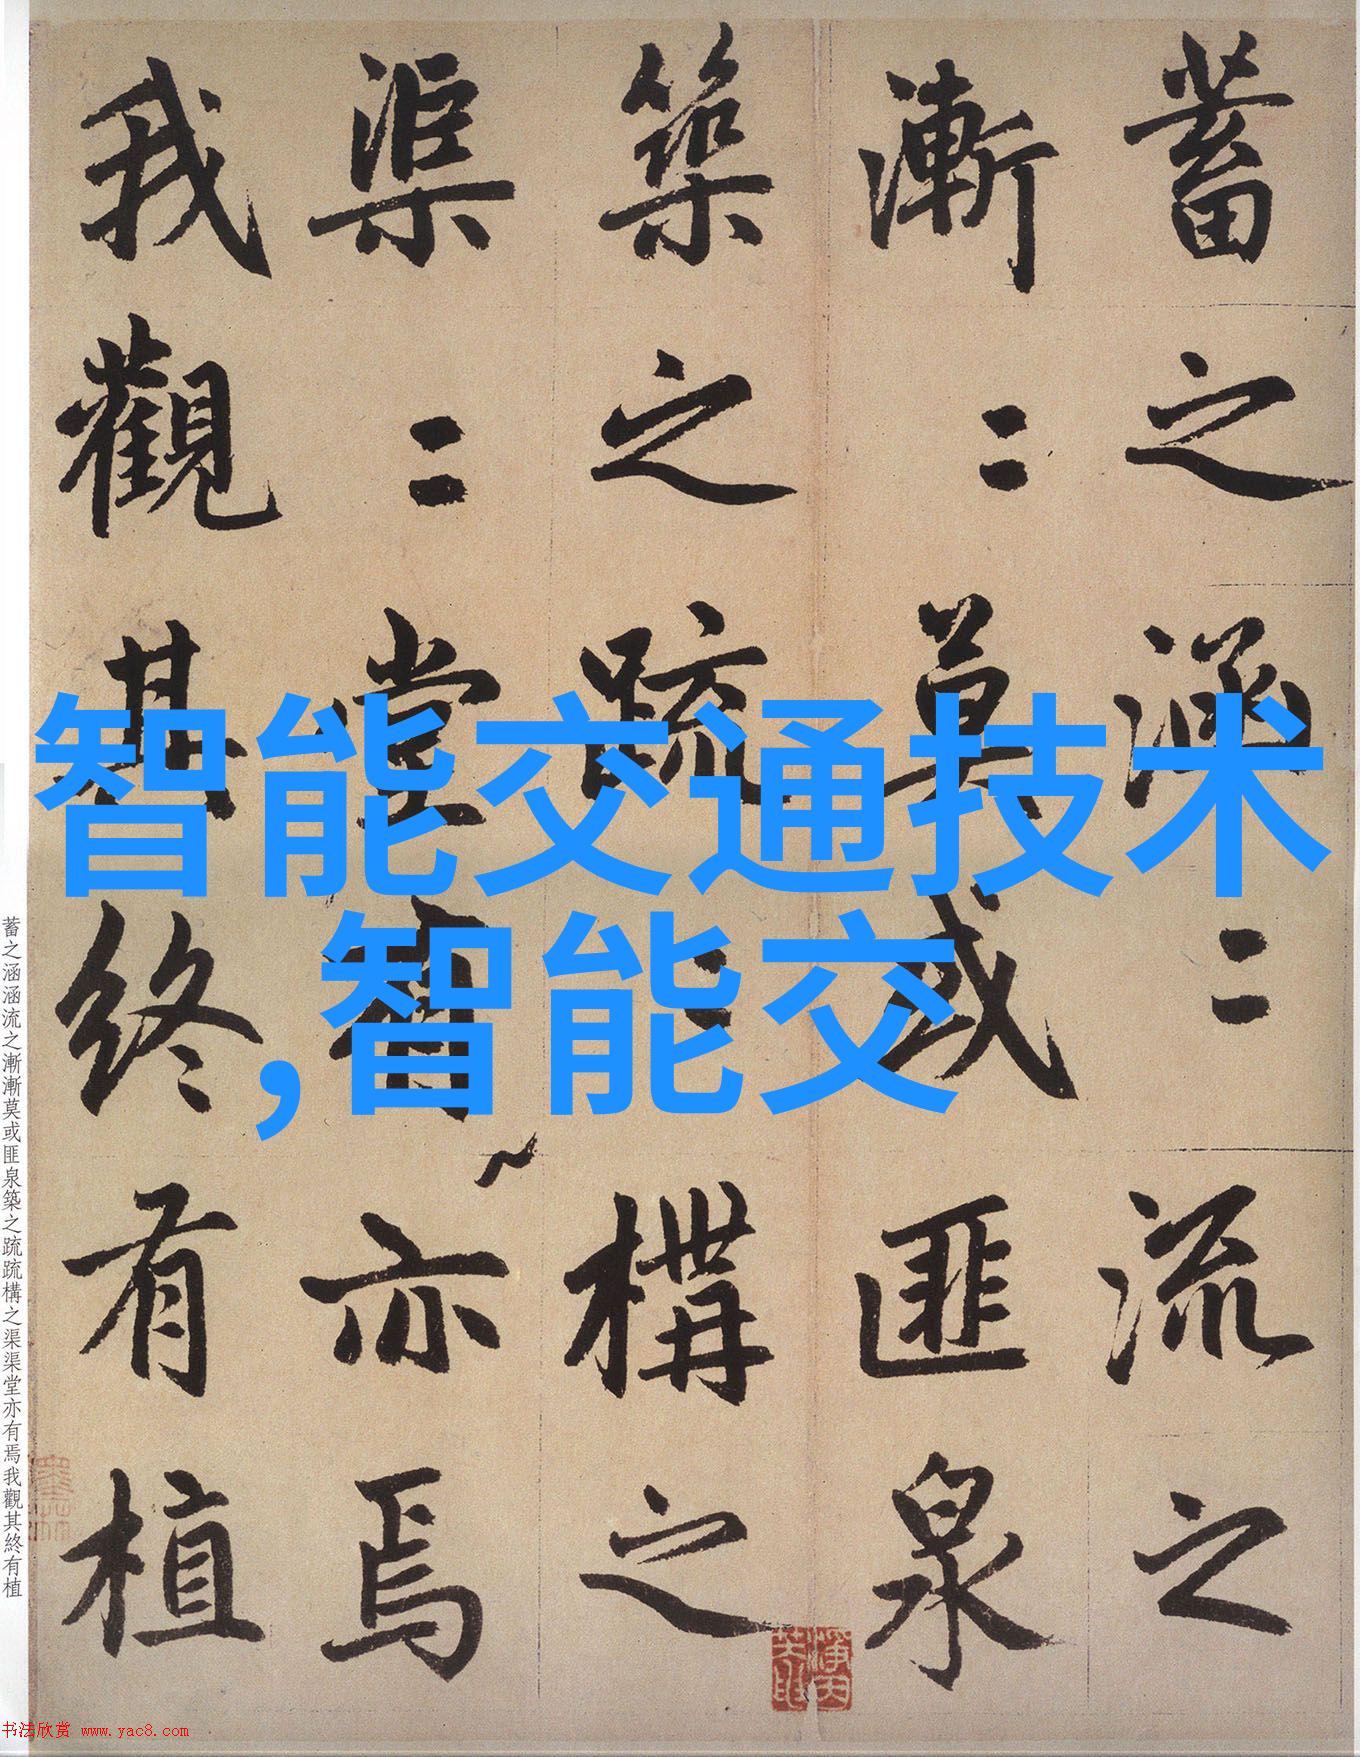 蓄之涵二流之
漸二莫或匪泉
築之疏二構之
渠二堂有亦焉
我觀其終有植
智能交通技术
,智能交
蓄之涵涵流之漸漸莫或匪泉築之疏疏構之渠渠堂亦有焉我觀其終有植
书法欣赏 www.yac8.com